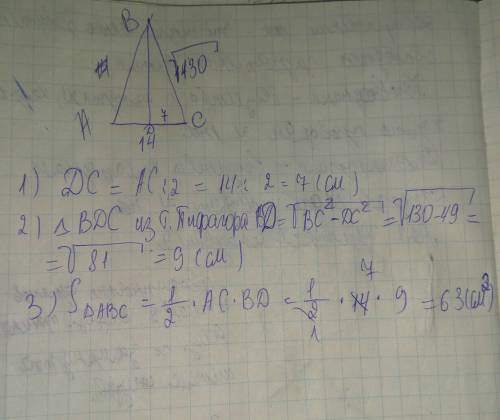 B
√130
7
A D C
14
1) DC = AC : 2 = 14 : 2 = 7 (см)
2) △ BDC из т. Пифагора BD = √BC² - DC² = √130 - 49 =
= √81 = 9 (см)
3) S△ABC = 1/2 · AC · BD = 1/2 · 14 · 9 = 63 (см²)
7
1